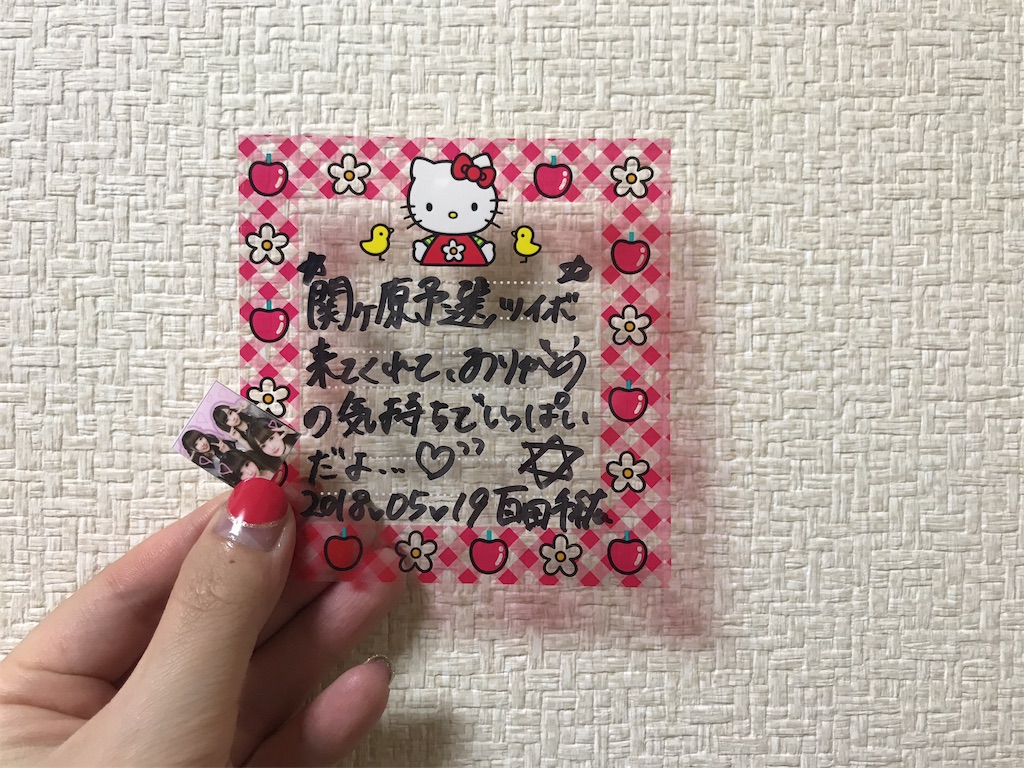 ☆関ヶ原予選ツイボ☆
来てくれて、ありがとう
の気持ちでいっぱい
だよ...♡”☆
2018.05.19 百田千穂